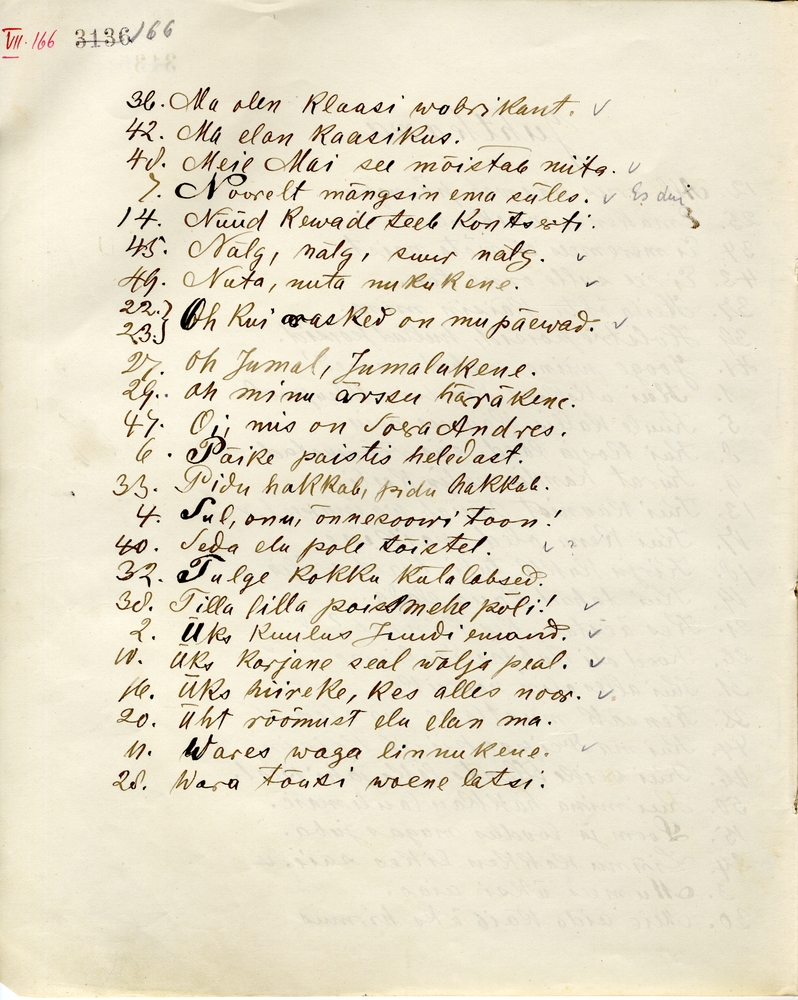 VII. 166 3136/66
36. Ma olen klaasi wobrikant. ✓
42. Ma elan kaasikus.
48. Meie Mai see mõistab niita. ✓
7. Noorelt mängsin ema süles. ✓
14. Nüüd kewade teeb kontserti.
45. Nälg, nälg, suur nälg. ✓
49. Nuta, nuta nukukene. ✓
22.}
23.} Oh kui rasked on mu päewad. ✓
27. Oh Jumal, Jumalukene.
29. Oh minu ärssu häräkene.
47. Oi, mis on Soera Andres.
6. Päike paistis heledast.
33. Pidu hakkab, pidu hakkab.
4. Sul, onu, õnnesoowi toon!
40. Seda elu pole tõistel. ✓ ?
32. Tulge kokku külalapsed.
38. Tilla lilla poissmehe põli! ✓
2. Üks kuulus Juudi emand. ✓
10. Üks karjane seal wälja peal. ✓
16. Üks hiireke, kes alles noor. ✓
20. Üht rõõmust elu elan ma.
11. Wares waga linnukene. ✓
28. Wara tõusi woene latsi.